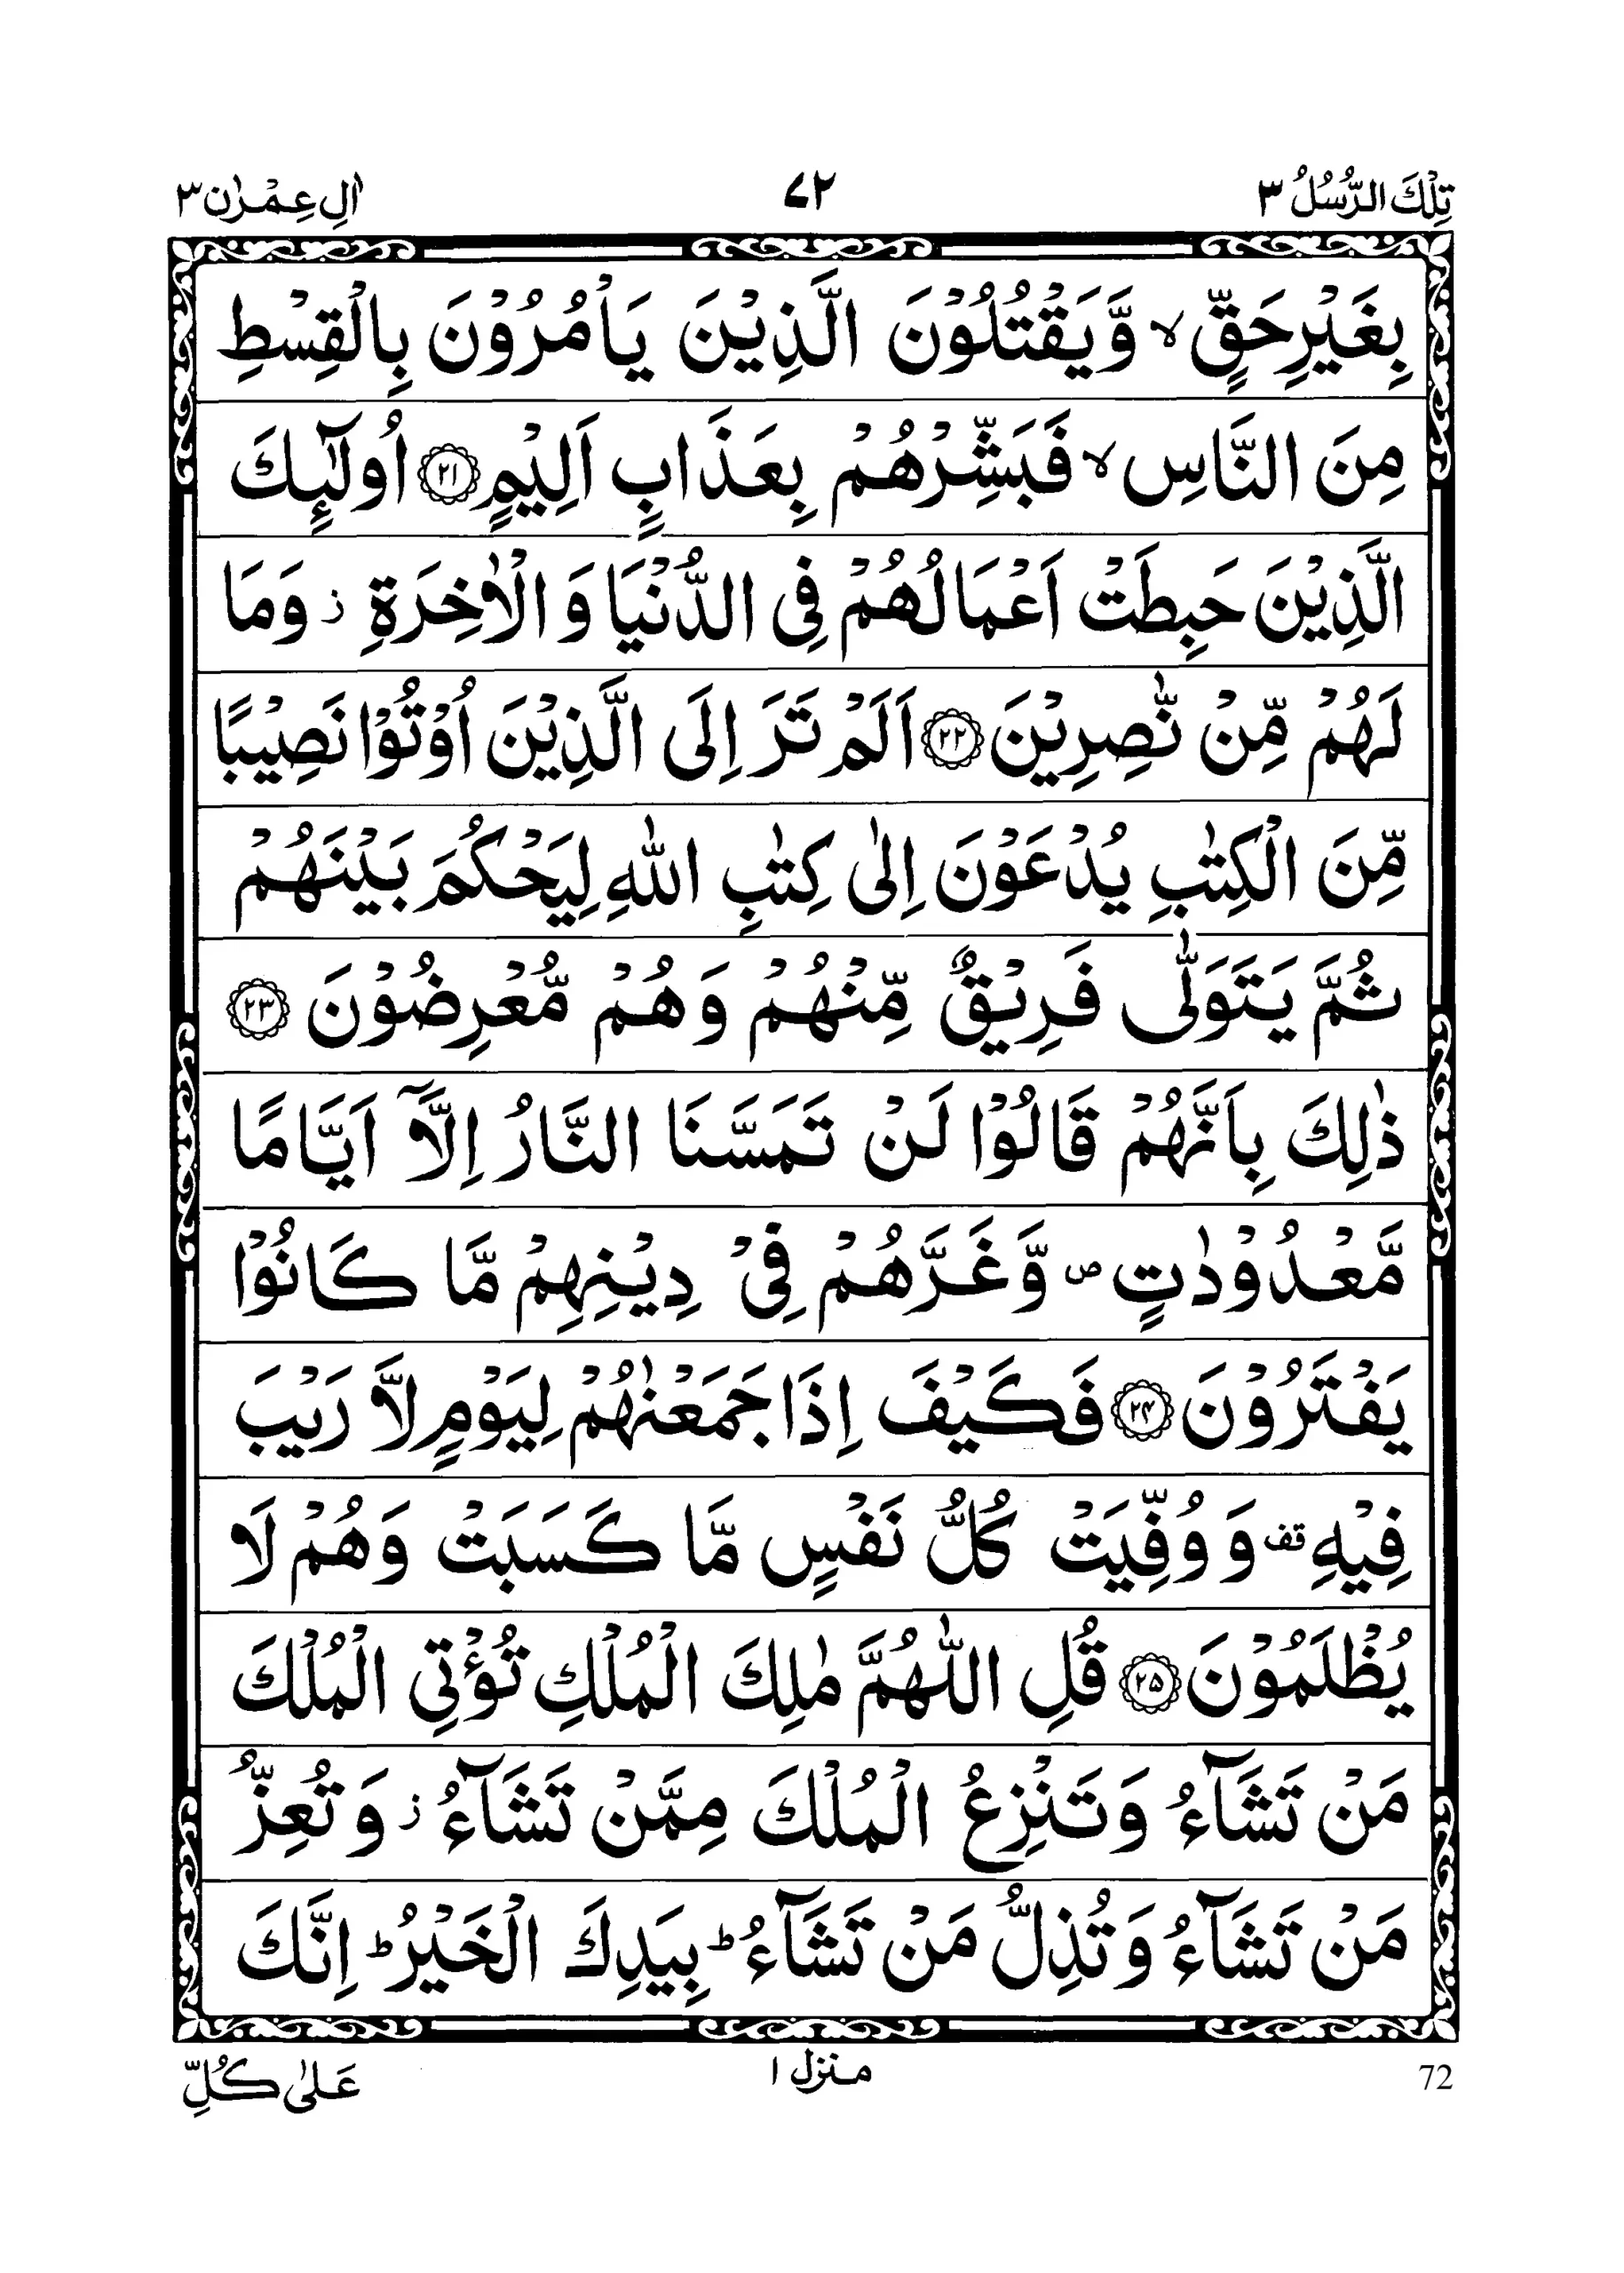 تِلْكَ الرُّسُلُ ٣
٧٢
اٰلِ عِمْرٰن ٣
بِغَيْرِ حَقٍّ ۙ وَّيَقْتُلُوْنَ الَّذِيْنَ يَاْمُرُوْنَ بِالْقِسْطِ
مِنَ النَّاسِ ۙ فَبَشِّرْهُمْ بِعَذَابٍ اَلِيْمٍ ﴿٢١﴾ اُولٰٓئِكَ
الَّذِيْنَ حَبِطَتْ اَعْمَالُهُمْ فِى الدُّنْيَا وَ الْاٰخِرَةِ ز وَمَا
لَهُمْ مِّنْ نّٰصِرِيْنَ ﴿٢٢﴾ اَلَمْ تَرَ اِلَى الَّذِيْنَ اُوْتُوْا نَصِيْبًا
مِّنَ الْكِتٰبِ يُدْعَوْنَ اِلٰى كِتٰبِ اللّٰهِ لِيَحْكُمَ بَيْنَهُمْ
ثُمَّ يَتَوَلّٰى فَرِيْقٌ مِّنْهُمْ وَهُمْ مُّعْرِضُوْنَ ﴿٢٣﴾
ذٰلِكَ بِاَنَّهُمْ قَالُوْا لَنْ تَمَسَّنَا النَّارُ اِلَّآ اَيَّامًا
مَّعْدُوْدٰتٍ ص وَّغَرَّهُمْ فِىْ دِيْنِهِمْ مَّا كَانُوْا
يَفْتَرُوْنَ ﴿٢٤﴾ فَكَيْفَ اِذَا جَمَعْنٰهُمْ لِيَوْمٍ لَّا رَيْبَ
فِيْهِ قف وَ وُفِّيَتْ كُلُّ نَفْسٍ مَّا كَسَبَتْ وَهُمْ لَا
يُظْلَمُوْنَ ﴿٢٥﴾ قُلِ اللّٰهُمَّ مٰلِكَ الْمُلْكِ تُؤْتِى الْمُلْكَ
مَنْ تَشَآءُ وَتَنْزِعُ الْمُلْكَ مِمَّنْ تَشَآءُ ز وَ تُعِزُّ
مَنْ تَشَآءُ وَ تُذِلُّ مَنْ تَشَآءُ ؕ بِيَدِكَ الْخَيْرُ ؕ اِنَّكَ
72
منزل ١
عَلٰى كُلِّ